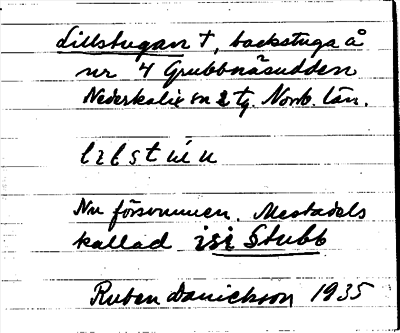 Lillstugan †, backstuga å
nr 4 Grubbnäsudden
Nederkalix sn 2 tg. Norrb. län.
Nu försvunnen. Mestadels
kallad isi Stubb
Ruben Danielsson 1935